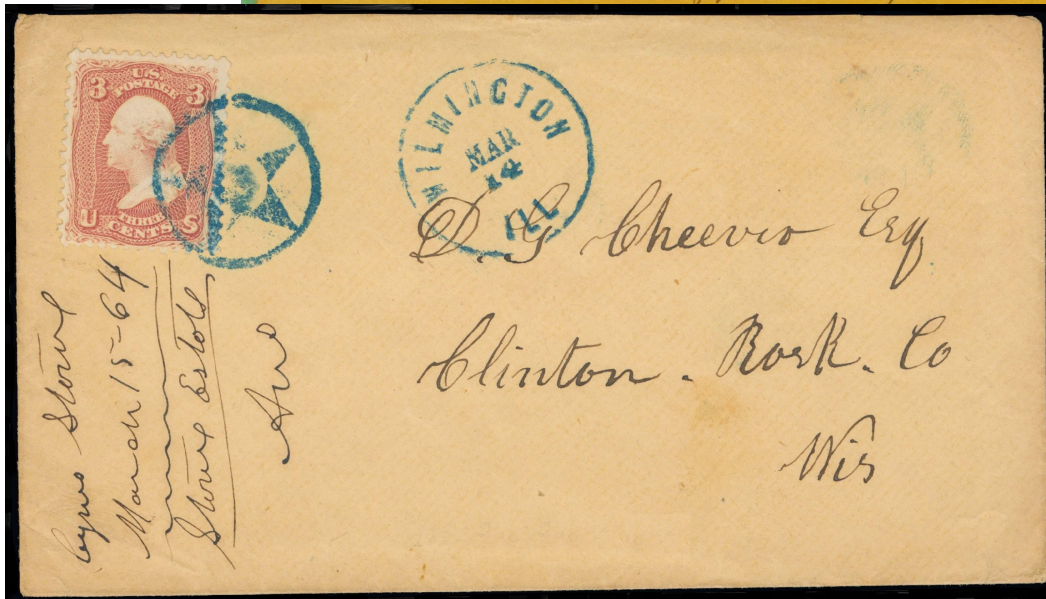 3 U.S. 3
POSTAGE
U THREE S
CENTS
WILMINGTON
MAR
14
ILL
D. G Cheever Esq
Clinton. Rock. Co
Wis
Cyrus Stowe
March 15-64
Stowe